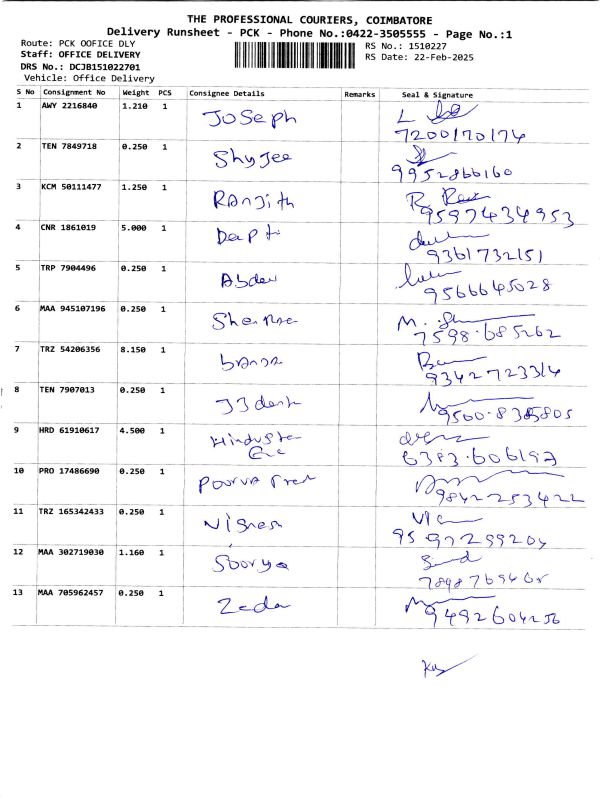 THE PROFESSIONAL COURIERS, COIMBATORE
Delivery Runsheet - PCK - Phone No.:0422-3505555 - Page No.:1
Route: PCK OOFICE DLY
RS No.: 1510227
Staff: OFFICE DELIVERY
RS Date: 22-Feb-2025
DRS No.: DCJB151022701
Vehicle: Office Delivery
S No Consignment No Weight PCS Consignee Details Remarks Seal & Signature
1 AWY 2216840 1.210 1 Joseph
7200170174
2 TEN 7849718 0.250 1 Shyjee
9952866160
3 KCM 50111477 1.250 1 Ranjith
9597434953
4 CNR 1861019 5.000 1 Depti
9361732151
5 TRP 7904496 0.250 1
9566645028
6 MAA 945107196 0.250 1
7598685262
7 TRZ 54206356 8.150 1
9342723314
8 TEN 7907013 0.250 1
9 HRD 61910617 4.500 1
10 PRO 17486690 0.250 1
9842253422
11 TRZ 165342433 0.250 1
9597299204
12 MAA 302719030 1.160 1 Soorya
13 MAA 705962457 0.250 1
9492604256